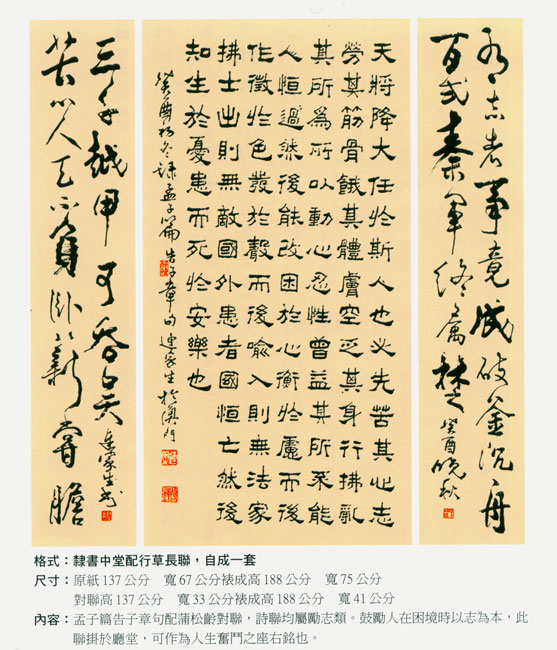 有志者事竟成破釜沉舟
百弍秦關終屬楚 癸酉晚秋
天將降大任於斯人也必先苦其心志
勞其筋骨餓其體膚空乏其身行拂亂
其所為所以動心忍性曾益其所不能
人恒過然後能改困於心衡於慮而後
作徵於色發於聲而後喻入則無法家
拂士出則無敵國外患者國恒亡然後
知生於憂患而死於安樂也
癸酉初冬錄孟子篇告子章句連家生於澳門
苦心人天不負臥薪嘗膽
三千越甲可吞吳 連家生書
格式：隸書中堂配行草長聯，自成一套
尺寸：原紙137公分　寬67公分裱成高188公分　寬75公分
對聯高137公分　寬33公分裱成高188公分　寬41公分
內容：孟子篇告子章句配蒲松齡對聯，詩聯均屬勵志類。鼓勵人在困境時以志為本，此
聯掛於廳堂，可作為人生奮鬥之座右銘也。